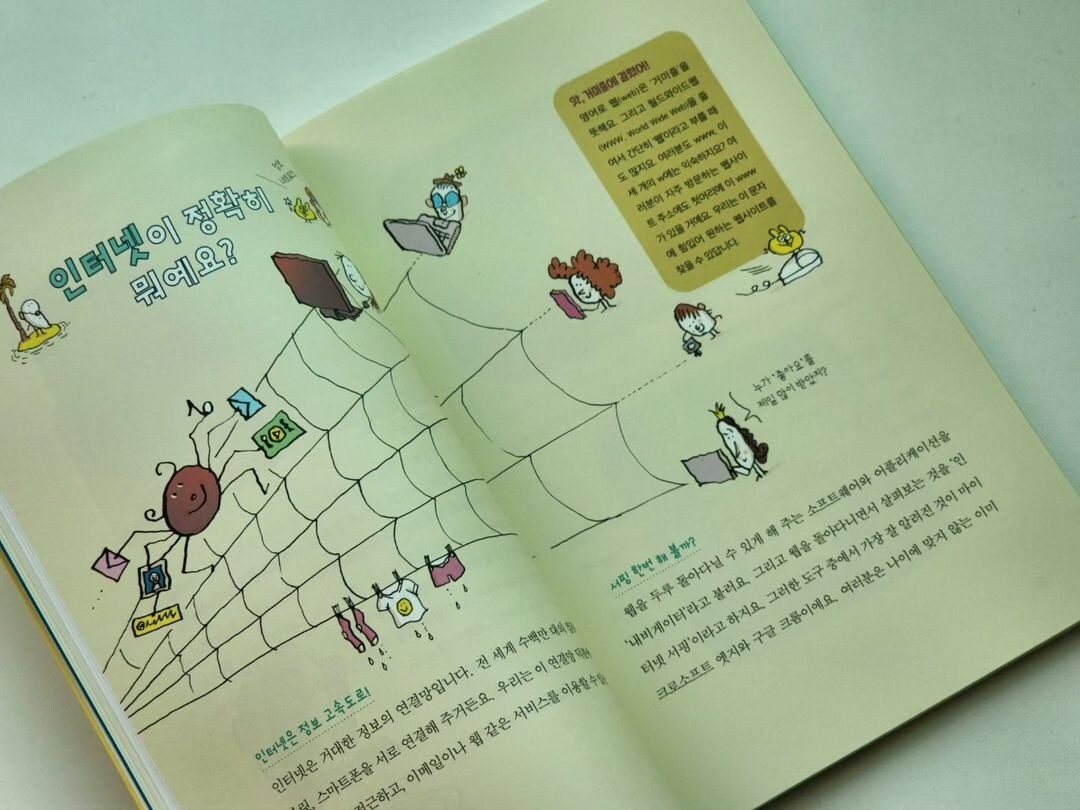 인터넷이 정확히
뭐예요?
앗, 거미줄에 걸렸어!
영어로 웹(web)은 '거미줄'을
뜻해요. 그리고 월드와이드웹
(WWW, World Wide Web)을 줄
여서 간단히 '웹'이라고 부를 때
도 많지요. 여러분도 www, 이
세 개의 w에는 익숙하지요? 여
러분이 자주 방문하는 웹사이
트 주소에도 첫머리에 이 www
가 있을 거예요. 우리는 이 문자
에 힘입어 원하는 웹사이트를
찾을 수 있답니다.
누가 '좋아요'를
제일 많이 받았지?
@
인터넷은 정보 고속도로!
인터넷은 거대한 정보의 연결망입니다. 전 세계 수백만 대의
스마트폰을 서로 연결해 주거든요. 우리는 이 연결망
접근하고, 이메일이나 웹 같은 서비스를 이용할 수
서핑 한번 해 볼까?
웹을 두루 돌아다닐 수 있게 해 주는 소프트웨어와 어플리케이션을
'내비게이터'라고 불러요. 그리고 웹을 돌아다니면서 살펴보는 것을 '인
터넷 서핑'이라고 하지요. 그러한 도구 중에서 가장 잘 알려진 것이 마이
크로소프트 엣지와 구글 크롬이에요. 여러분은 나이에 맞지 않는 이미